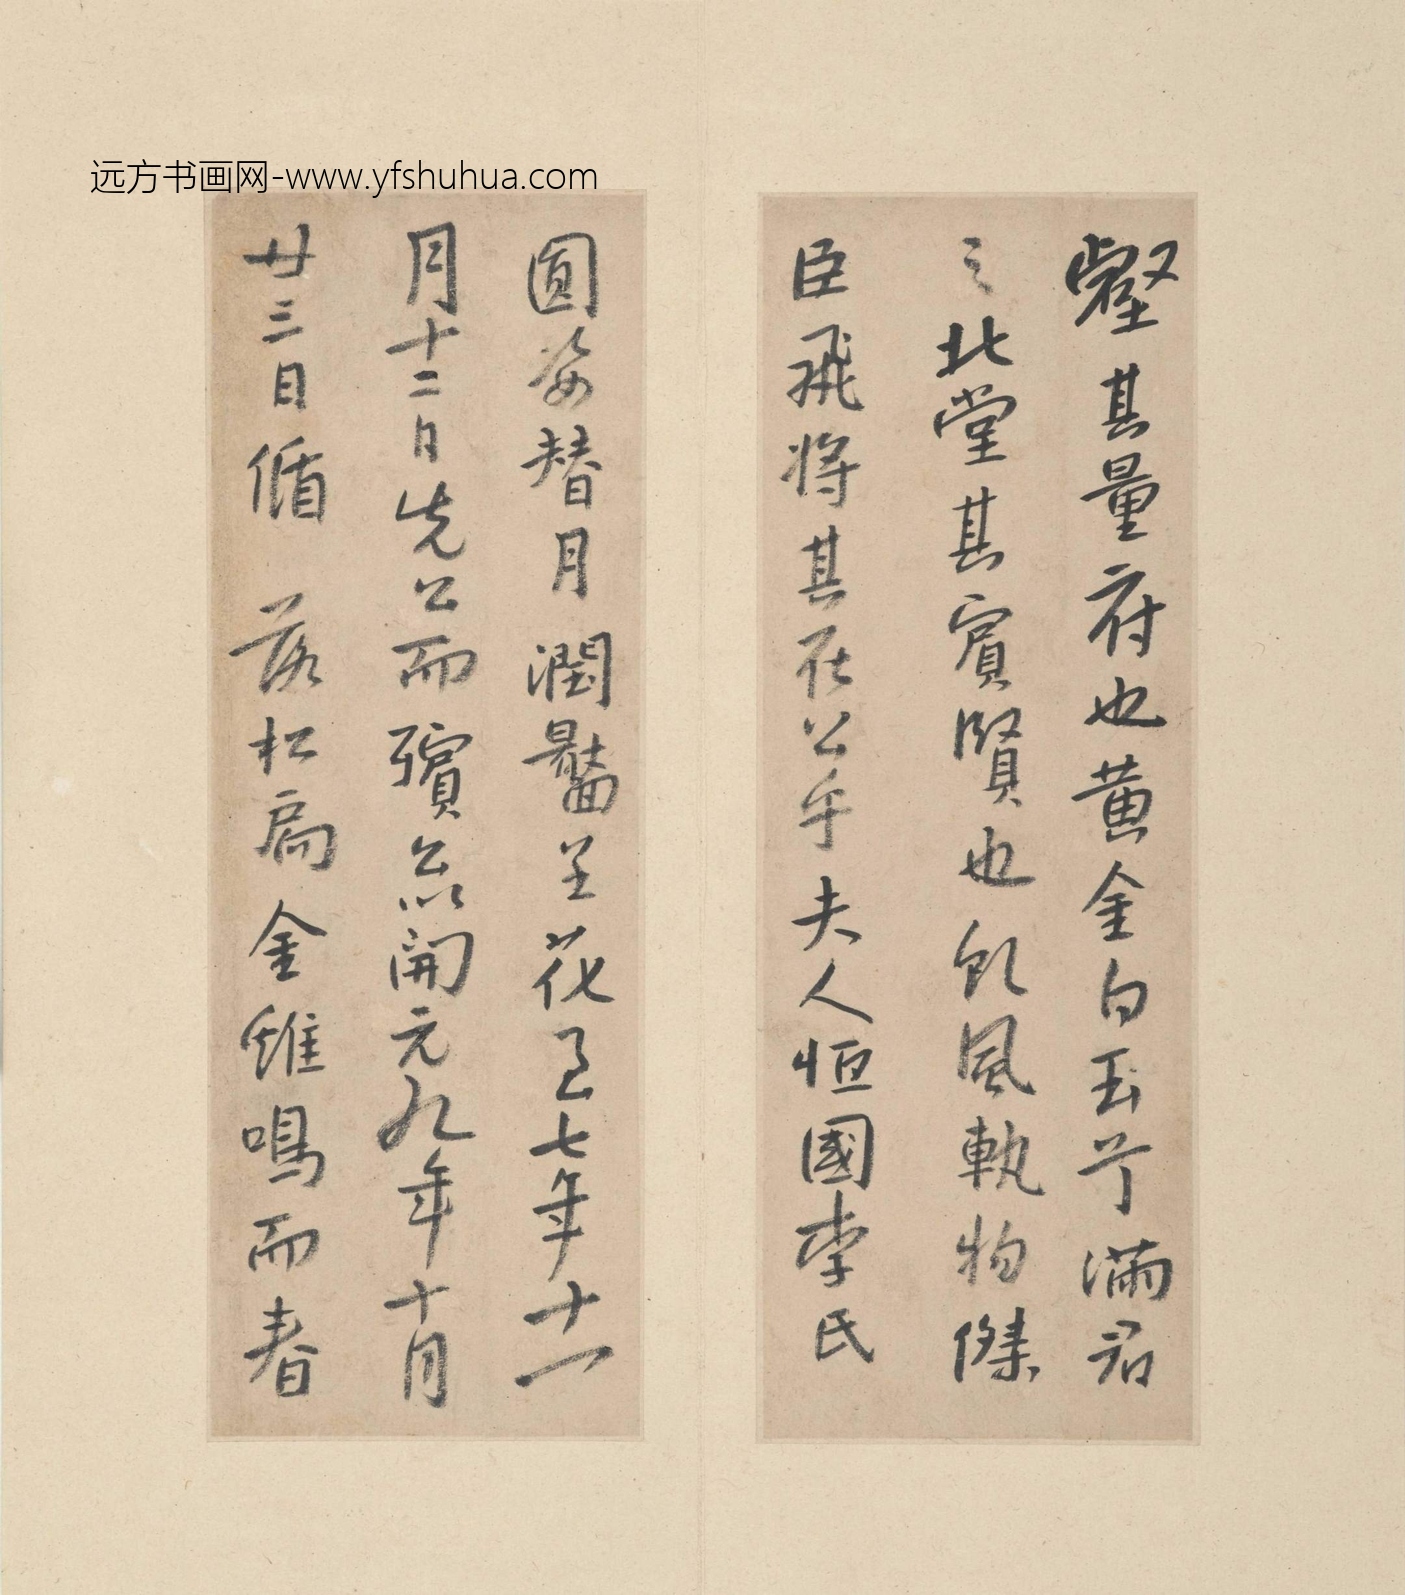 远方书画网-www.yfshuhua.com
壑其量府也黄金白玉斗满君
之北堂其賓賢也飲風執物傑
臣飛將其在公乎夫人恒國李氏
圓姿替月潤臉呈花以七年十一
月十二日先公而殯兹開元九年十月
廿三日循落松扃金雉鳴而春